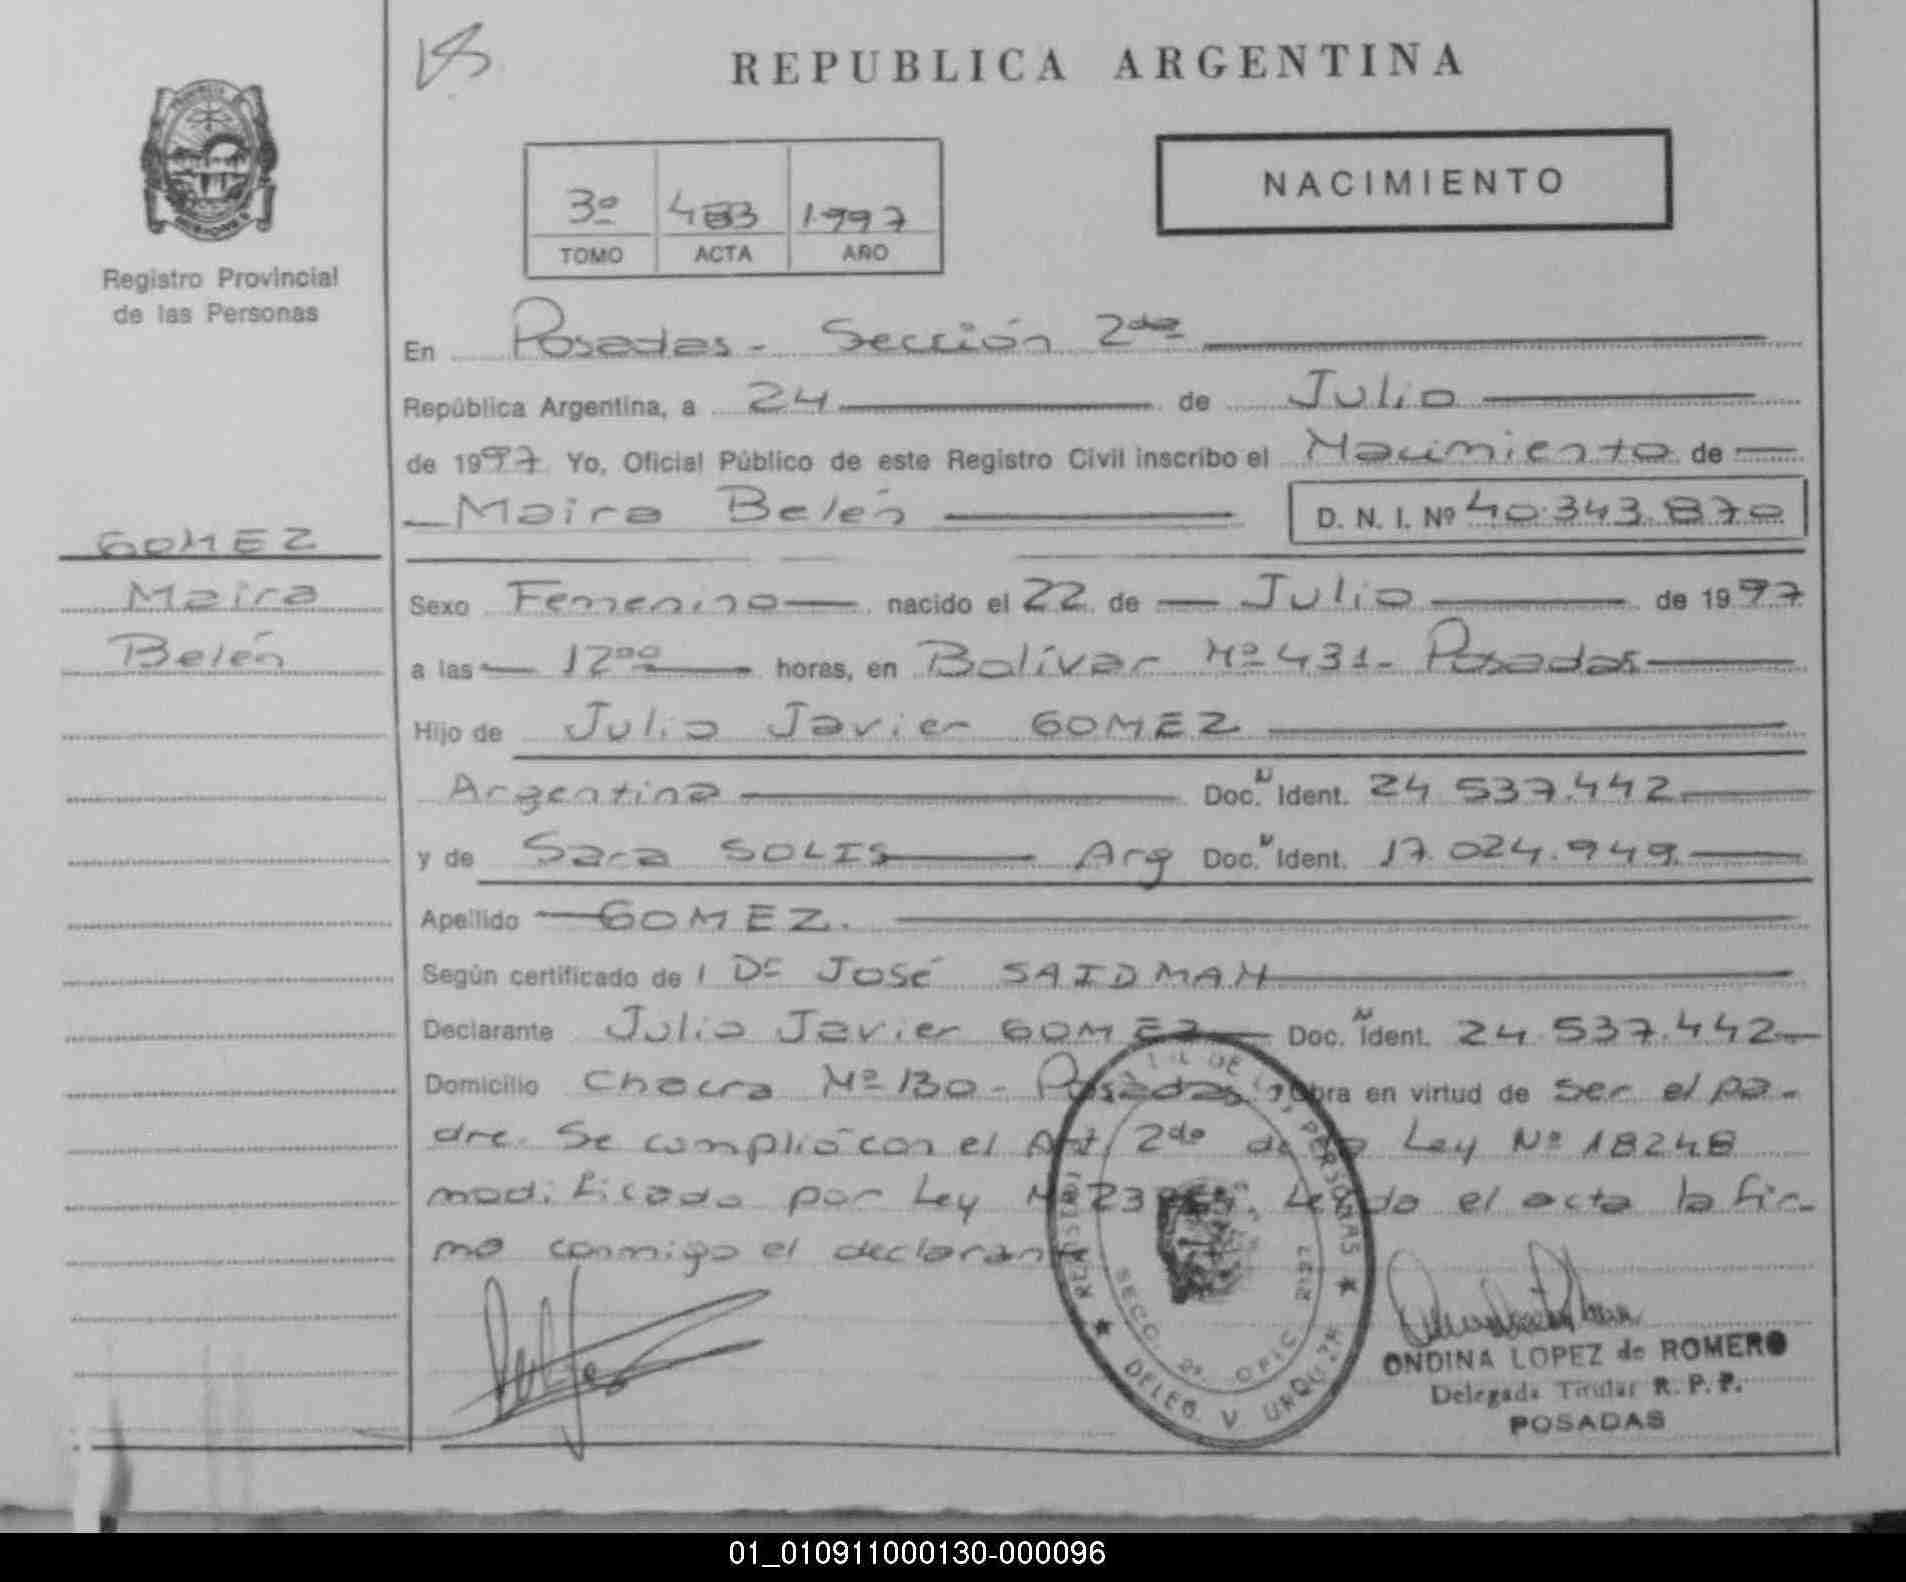 REPUBLICA ARGENTINA
NACIMIENTO
3º 483 1.997
TOMO ACTA AÑO
Registro Provincial
de las Personas
En Posadas - Sección 2da
República Argentina, a 24 de Julio
de 1997 Yo, Oficial Público de este Registro Civil inscribo el Nacimiento de
Maira Belén D. N. I. Nº 40.343.870
GOMEZ
Maira
Belén
Sexo Femenino nacido el 22 de Julio de 1997
a las 12ºº horas, en Bolívar Nº 431- Posadas
Hijo de Julio Javier GOMEZ
Argentina Doc. N Ident. 24.537.442
y de Sara SOLIS Arg Doc. N Ident. 17.024.949
Apellido GOMEZ.
Según certificado de Dr José SAIDMAN
Declarante Julio Javier GOMEZ Doc. N Ident. 24.537.442
Domicilio Chacra Nº 130 - Posadas Obra en virtud de ser el pa-
dre. Se cumplió con el Art. 2do de la Ley Nº 18248
modificado por Ley Nº Leída el acta la fir-
ma conmigo el declarante
PERSONAS
SECC. 2ª. OFIC.
DELEG. V. URQUIZA
ONDINA LOPEZ de ROMERO
Delegada Titular R. P. P.
POSADAS
01_010911000130-000096